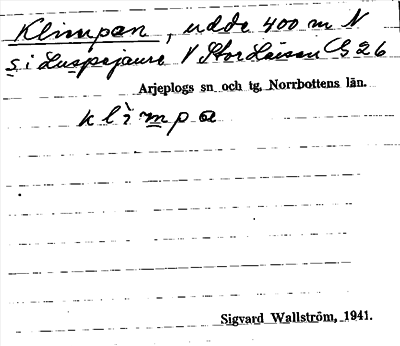 Klimpen, udde 400 m N
s i Luspejaure V Stor Laisan G 26
Arjeplogs sn och tg, Norrbottens län.
klìmpa
Sigvard Wallström, 1941.